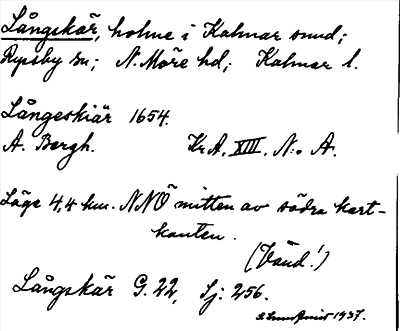 Långskär, holme i Kalmar sund;
Ryssby sn; N. Möre hd; Kalmar l.
Långeskiär 1654.
A. Bergh. Kr. A. XIII. N:o A.
Läge 4,4 km. NNÖ mitten av södra kart-
kanten.
(Vänd!)
Långskär G. 22, Sj: 256.
1937.